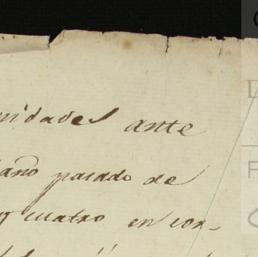 nidades ante
año pasado de
y cuatro en con-